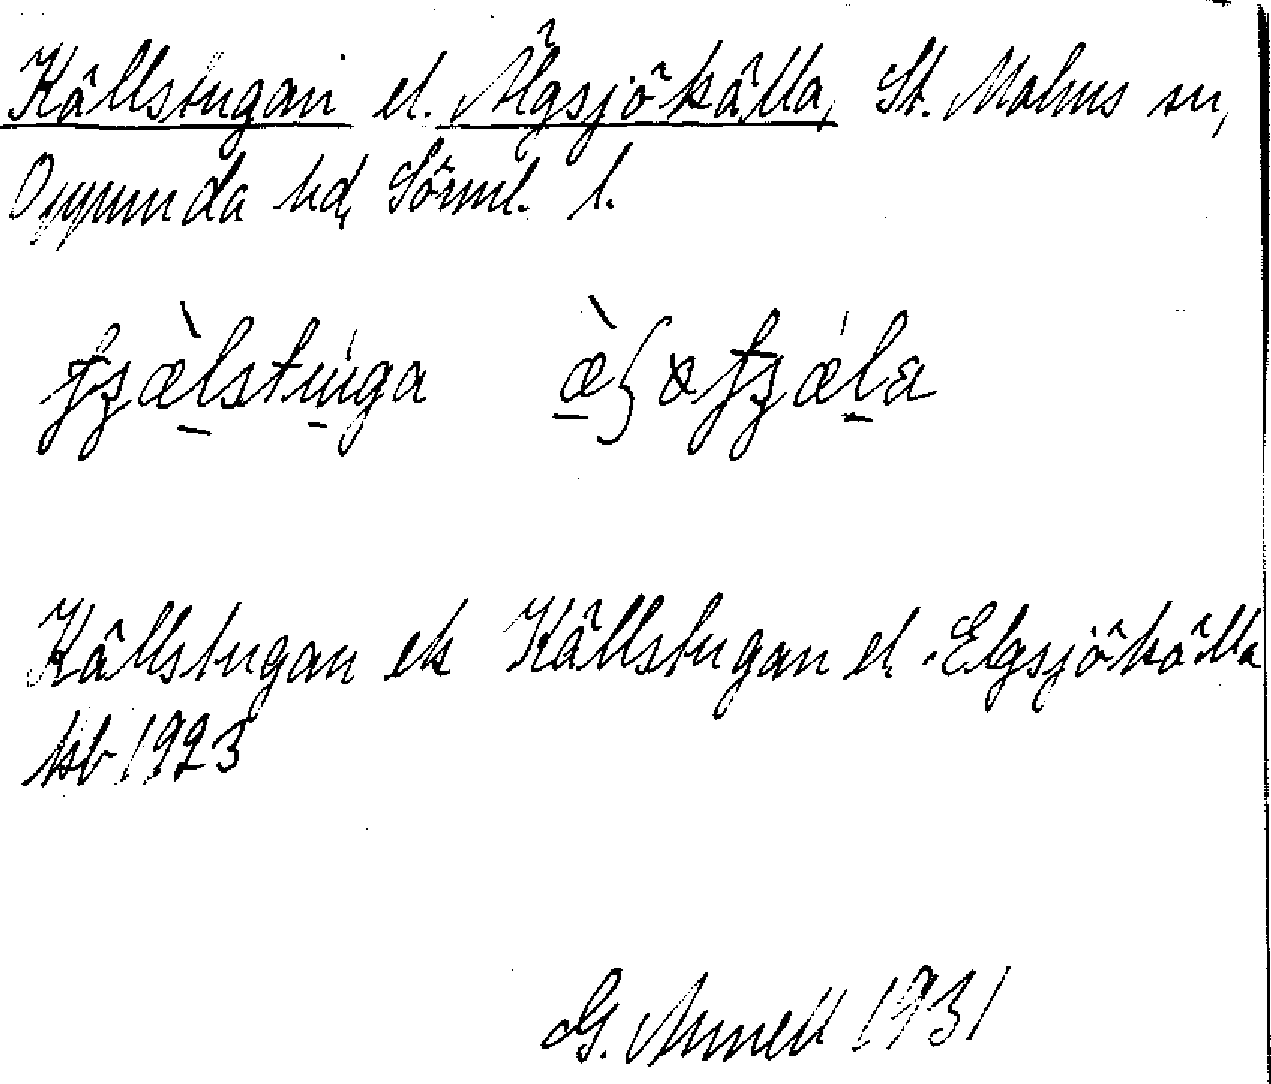 Källstugan el. Älgsjökälla, St. Malms sn,
Oppunda hd, Sörml. l.
Källstugan ek Källstugan el. Elgsjökälla
hsb 1923
G. Annell 1931